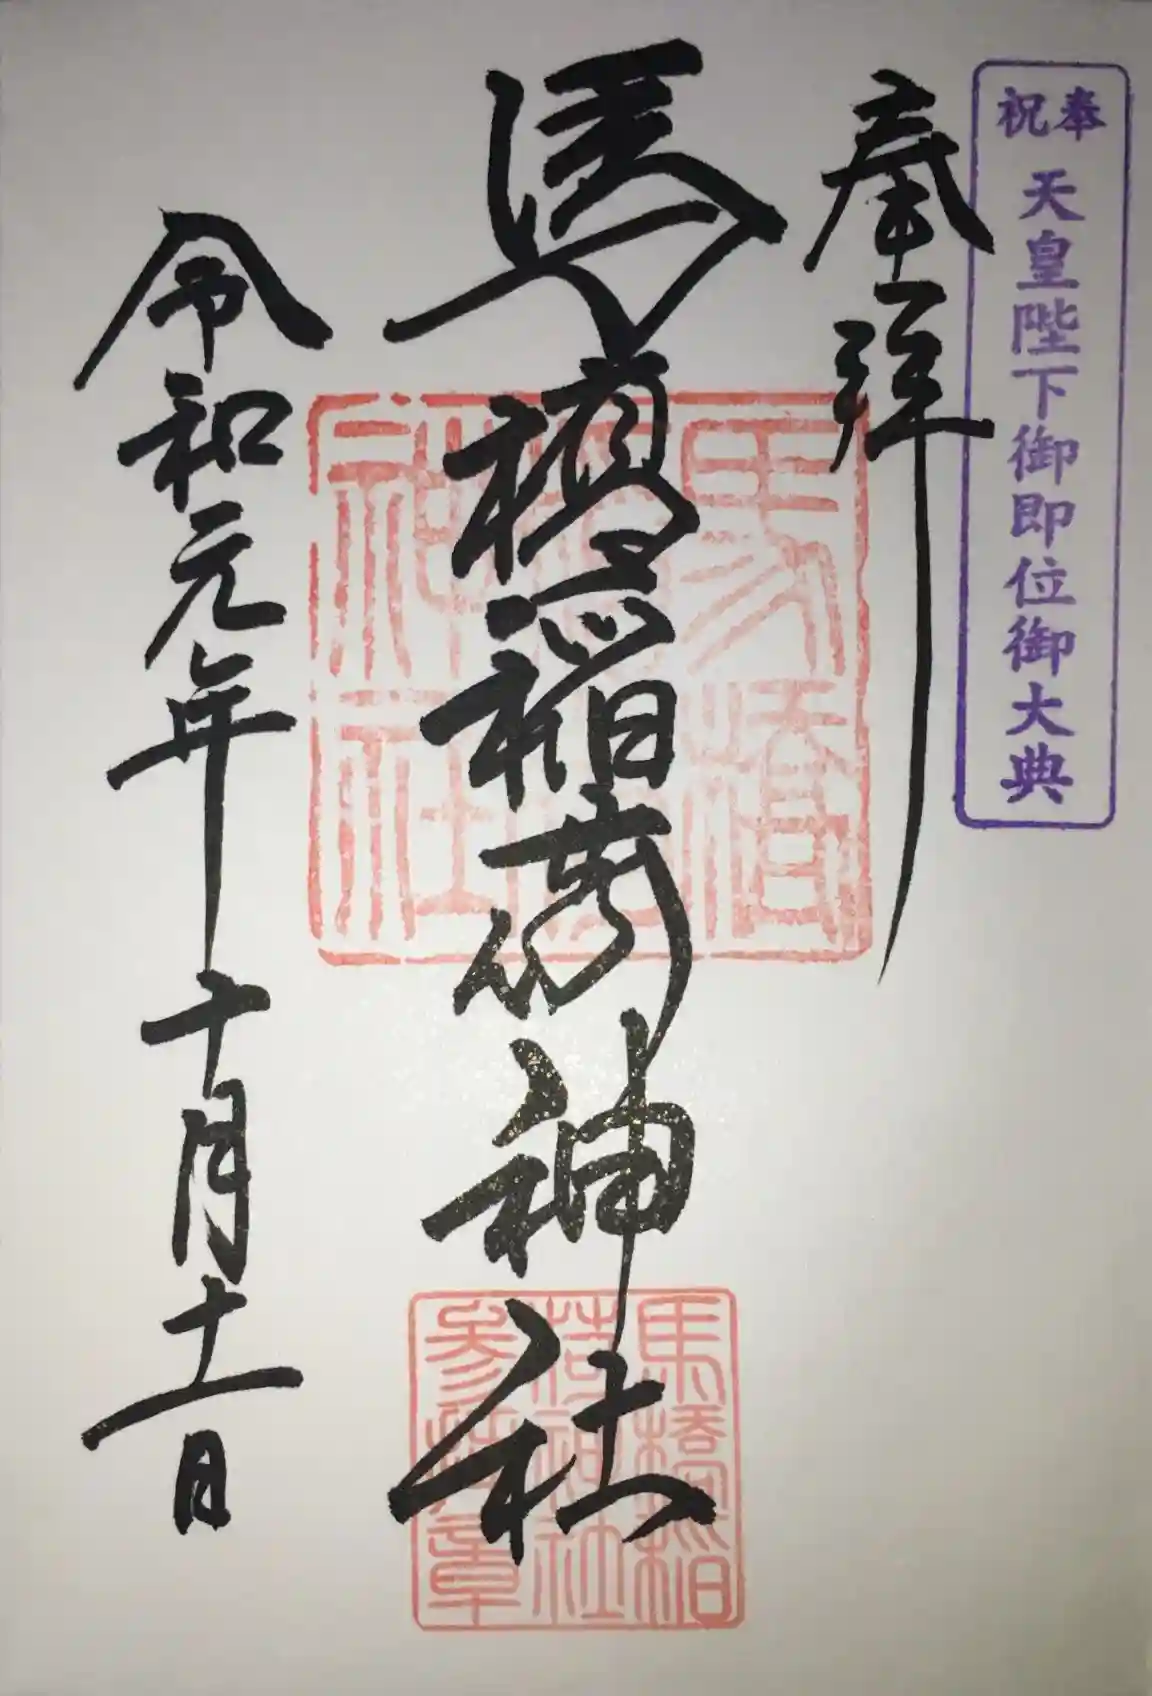 奉祝
天皇陛下御即位御大典
奉拝
馬橋稲荷神社
令和元年十月十一日
馬橋
稲荷
神社
馬橋稲
荷神社
参拝章